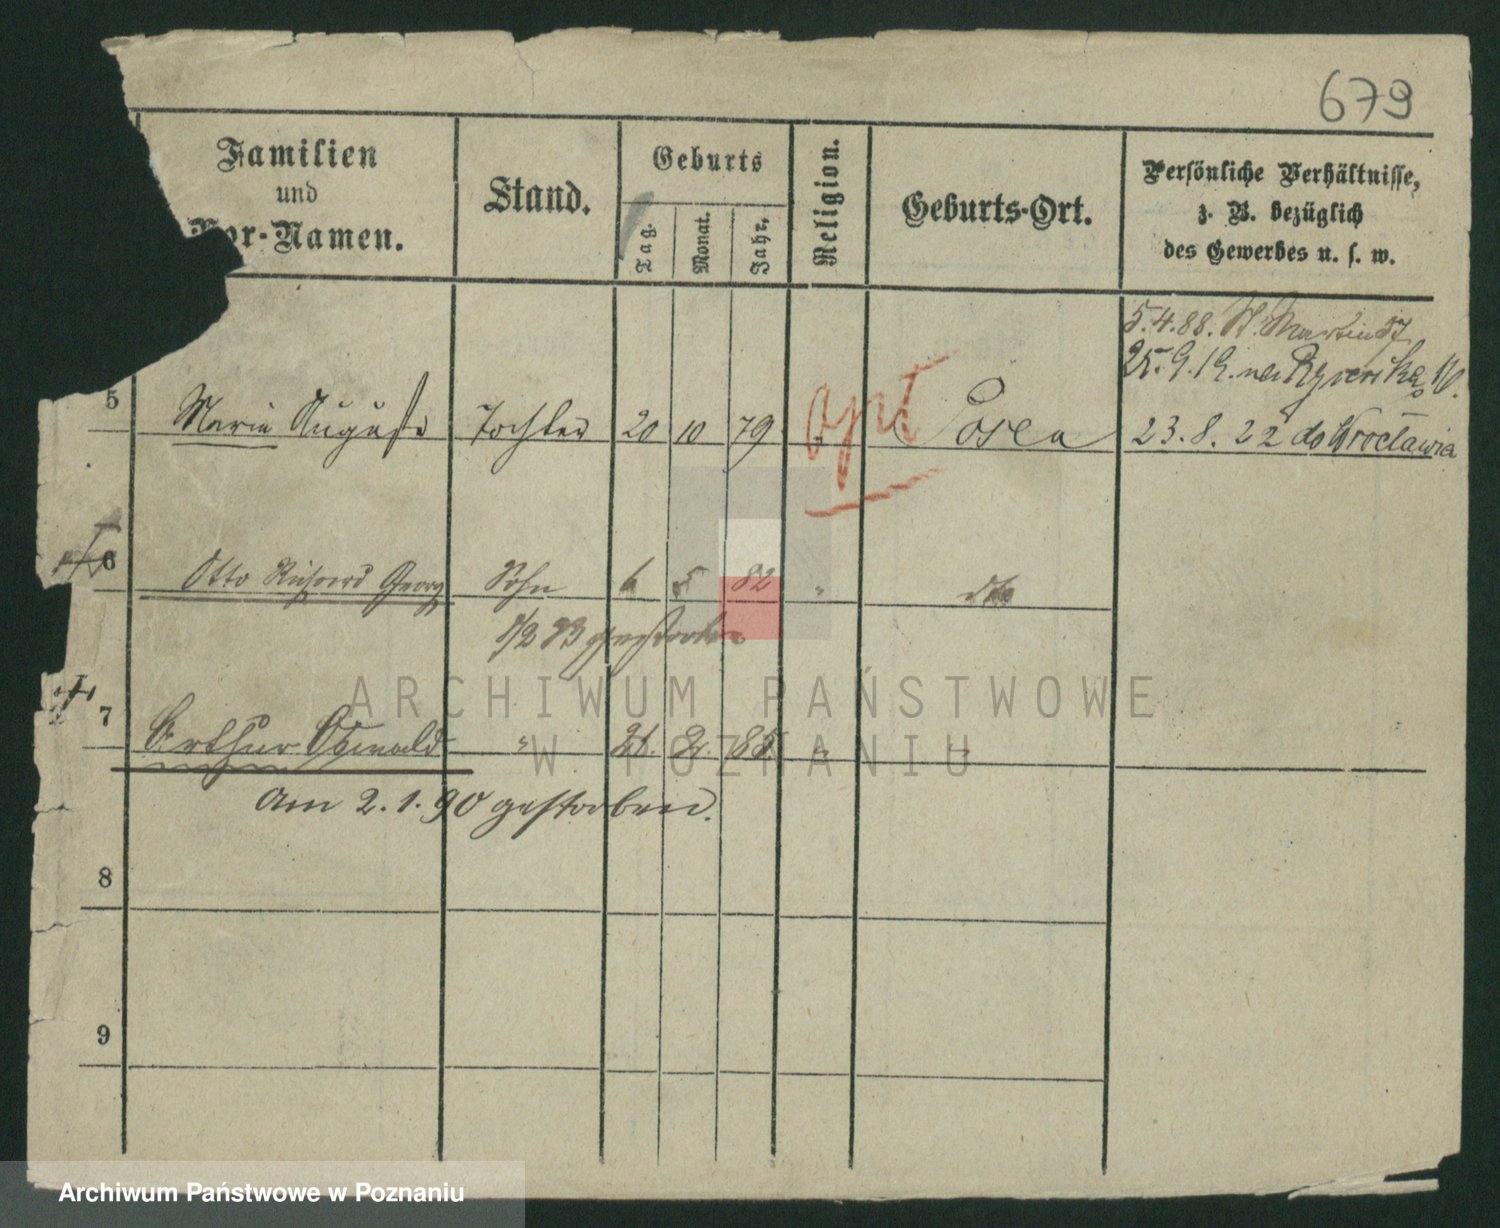 679
Familien
und
Vor-Namen.
Stand.
Geburts
Tag.
Monat.
Jahr.
Religion.
Geburts-Ort.
Persönliche Verhältnisse,
z. B. bezüglich
des Gewerbes u. s. w.
5.4.88. St. Martin 57
25.9.19. na 
5 Marie Auguste Tochter 20 10 79 " Posen 23.8.22 do Wrocławia
opt
6 Otto Richard Georg Sohn 6 5 82 " dto
1/2 83 gestorben
7 Arthur Oswald " 21. 2. 85 " "
Am 2.1.90 gestorben.
8
9
ARCHIWUM PAŃSTWOWE
W POZNANIU
Archiwum Państwowe w Poznaniu